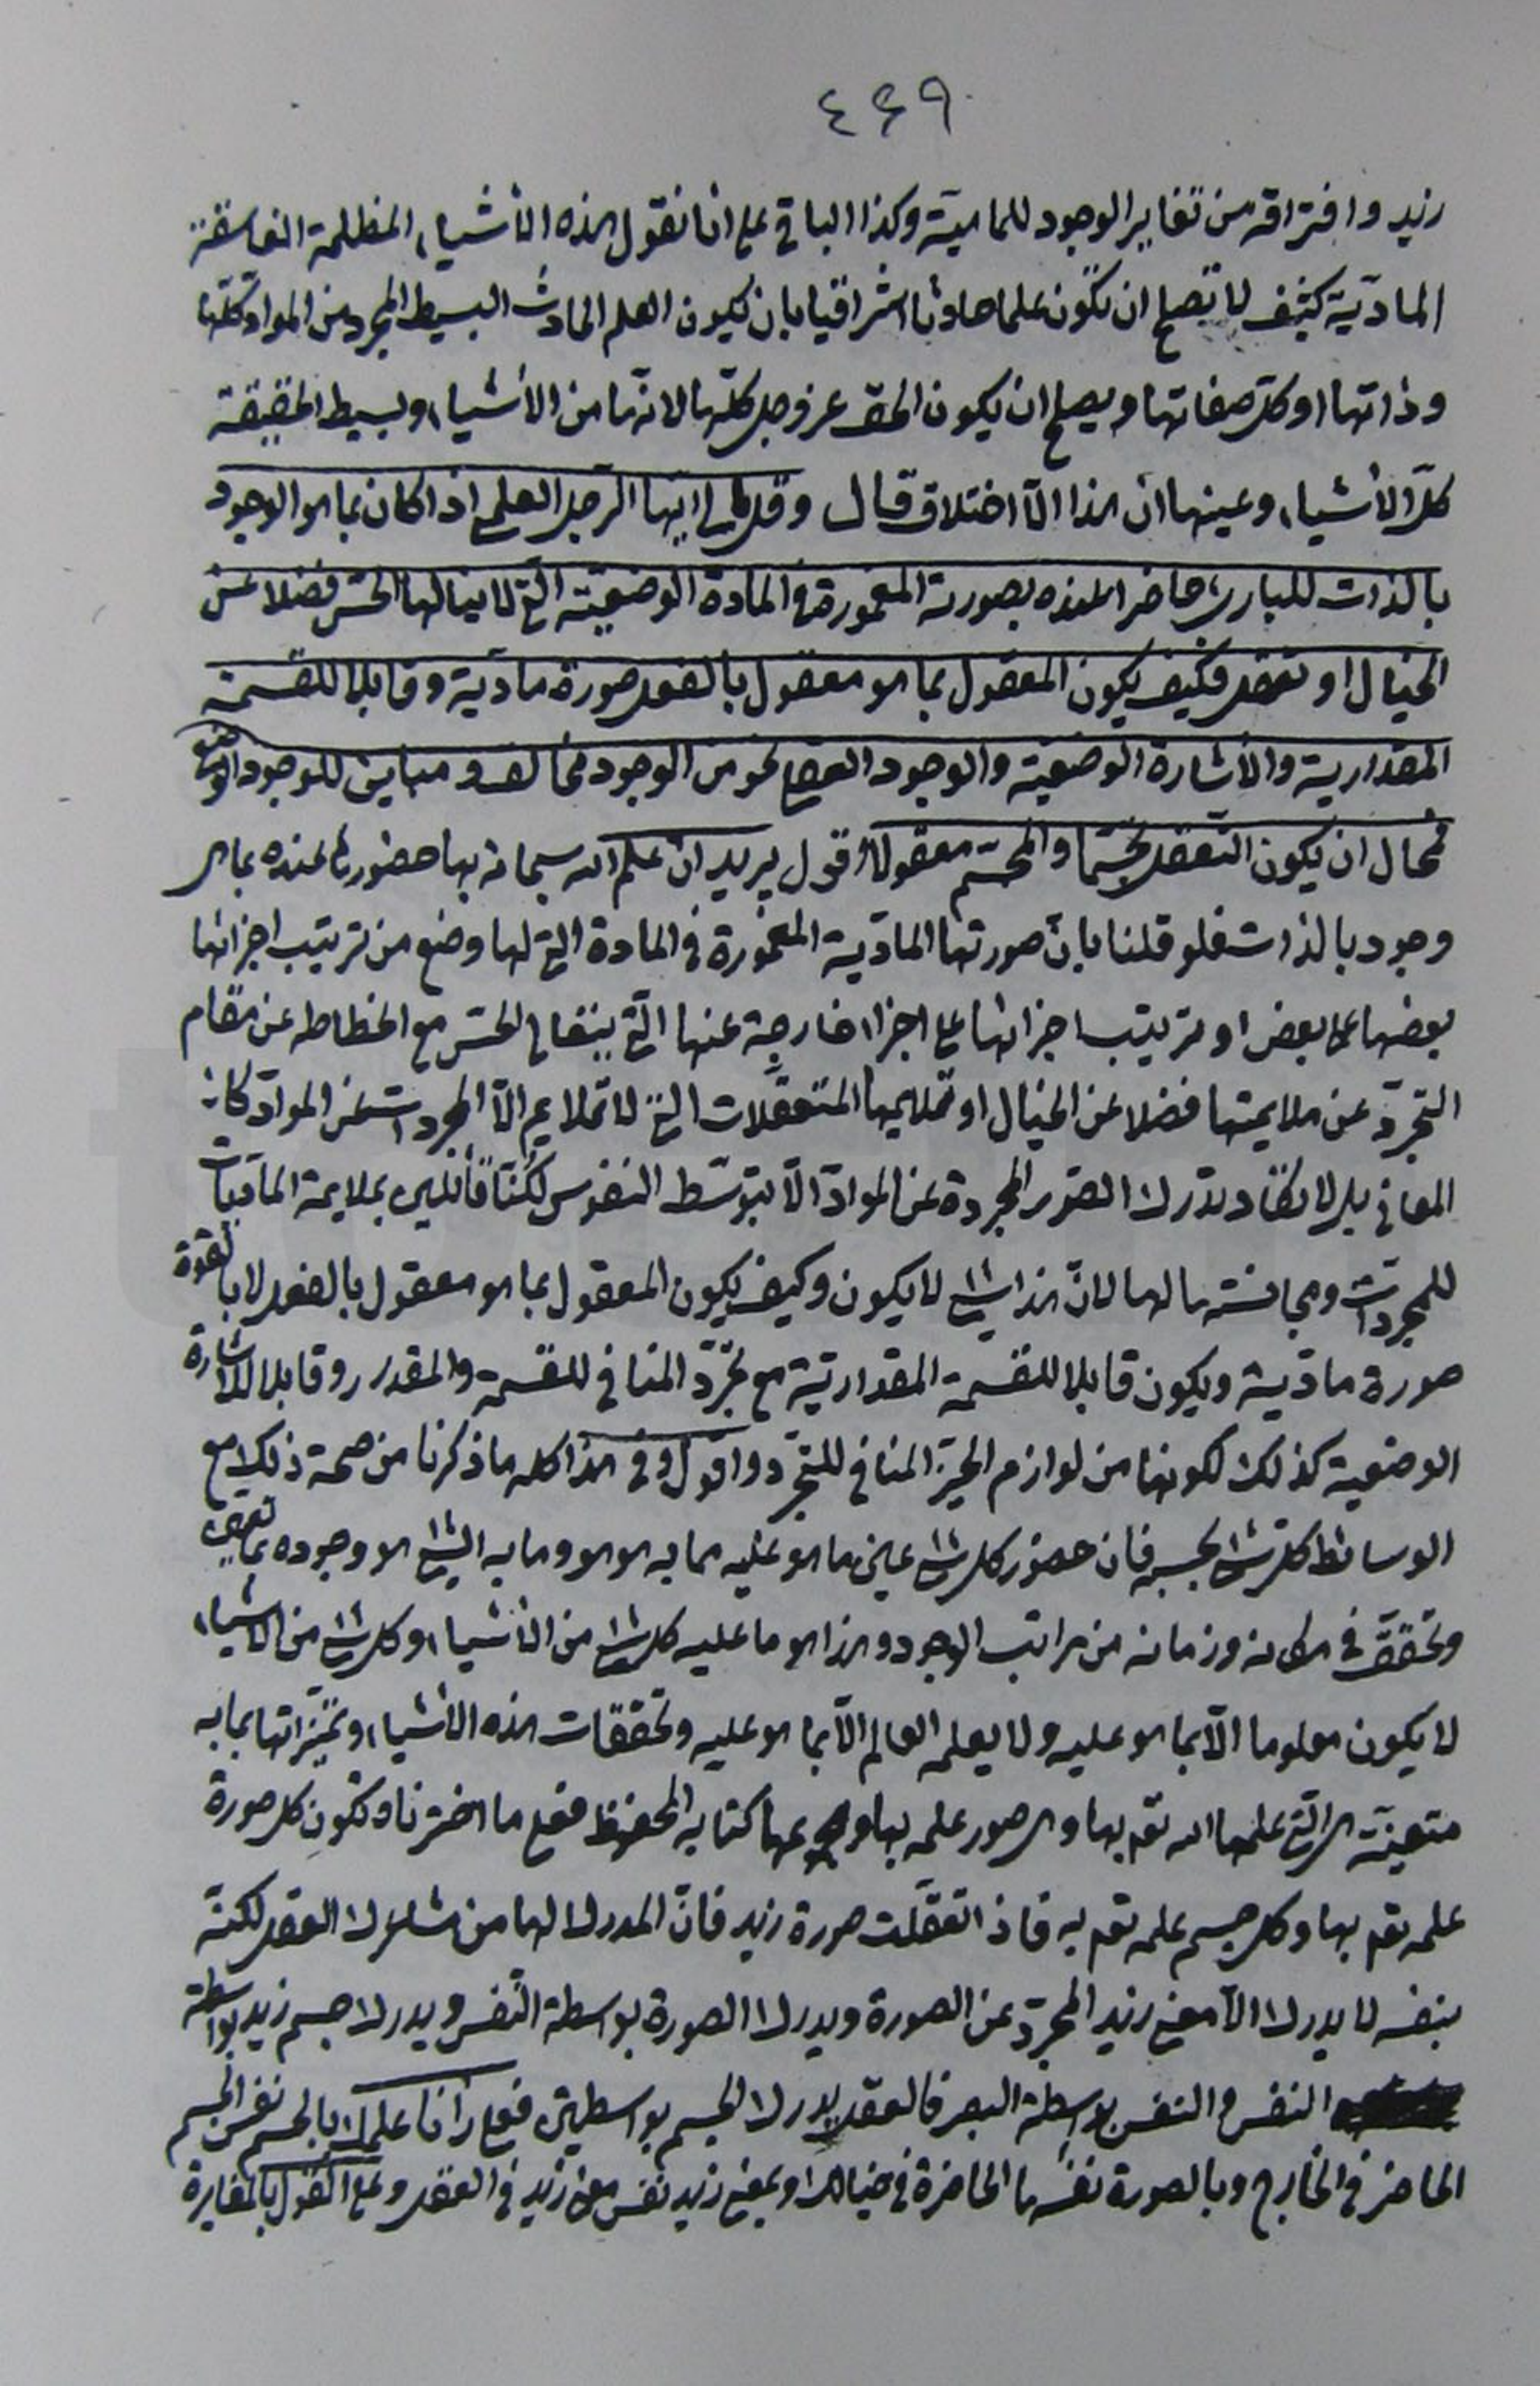 ٤٤٩
زيد وافتراقه من تغاير الوجود للماهية وكذا الباقي على انا نقول هذه الأشياء المظلمة الغاسقة
المادّية كيف لا تصلح ان تكون علما حادثا اشراقيا بان يكون العلم الحادث البسيط المجرد من المواد كلّها
وذاتها او كلّ صفاتها ويصلح ان يكون الحق عز وجل كلّها لانّها من الأشياء وبسيط الحقيقة
كلّ الأشياء وعينها ان هذا الّا اختلاق قال وقل لي ايّها الرجل العلمي اذا كان بما هو الوجود
بالذات للباري حاضرا عنده بصورته المغمورة في المادة الوضعيّة الّتي لا ينالها الحسّ فضلا عن
الخيال او تعقل فكيف يكون المعقول بما هو معقول بالفعل صورة مادّية وقابلا للقسمة
المقدارية والأشارة الوضعيّة والوجود العقلي نحو من الوجود مخالف ومباين للوجود الوضعي
فمحال ان يكون التعقّل تجسّما والمجسّم معقولا اقول يريد انّ علم الله سبحانه بها حضورها عنده بما هي
وجود بالذات فلو قلنا بانّ صورتها المادّية المغمورة في المادة الّتي لها وضع من ترتيب اجزائها
بعضها على بعض او ترتيب اجزائها على اجزاء خارجة عنها الّتي الحسّ مع انحطاطه عن مقام
التجرّد عن ملايمتها فضلا عن الخيال او تلايمها المتعقّلات الّتي لا تلايم الّا المجردات عن الموادّ كان
المعاني بل لا تكاد تدرك الصّور المجردة عن الموادّ الّا بتوسّط النفوس لكنّا قائلين بملايمة المادّيات
للمجردات ومجانستها لها لانّ هذا شيء لا يكون وكيف يكون المعقول بما هو معقول بالفعل لا بالقوة
صورة مادّية ويكون قابلا للقسمة المقداريّة مع تجرّد المنافي للقسمة والمقدار وقابلا للاشارة
الوضعية كذلك لكونها من لوازم الحيّز المنافي للتجرّد واقول وفي هذا كله ما ذكرنا من صحة ذلك مع
الوسائط كلّ شيء بحسبه فان حضور كل شيء على ما هو عليه مما به هو هو وما به الشيء هو وجوده
وتحقّقه في مكانه وزمانه من مراتب الوجود وهذا هو ما عليه كل شيء من الأشياء وكل شيء من الأشياء
لا يكون معلوما الّا بما هو عليه ولا يعلمه العالم الّا بما هو عليه وتحققات هذه الأشياء وتميّزاتها بما به
متعيّنة هي الّتي علمها الله تع بها وهي صور علمه بها كتابه المحفوظ فعلى ما اخترنا وتكون كل صورة
علمه تع بها وكل جسم علمه تع به فاذا تعقّلت صورة زيد فانّ المدرك لها من مشاعرك العقل لكنّه
بنفسه لا يدرك الّا معنى زيد المجرّد عن الصورة ويدرك الصورة بواسطة النّفس ويدرك جسم زيد بواسطة
النفس والنفس بواسطة البصر فالعقل يدرك الجسم بواسطتين فعلى رأينا علمك بالجسم نفس الجسم
الحاضر في الخارج وبالصورة نفسها الحاضرة في خيالك وبمعنى زيد نفس معنى زيد في العقل وعلى القول بالمغايرة